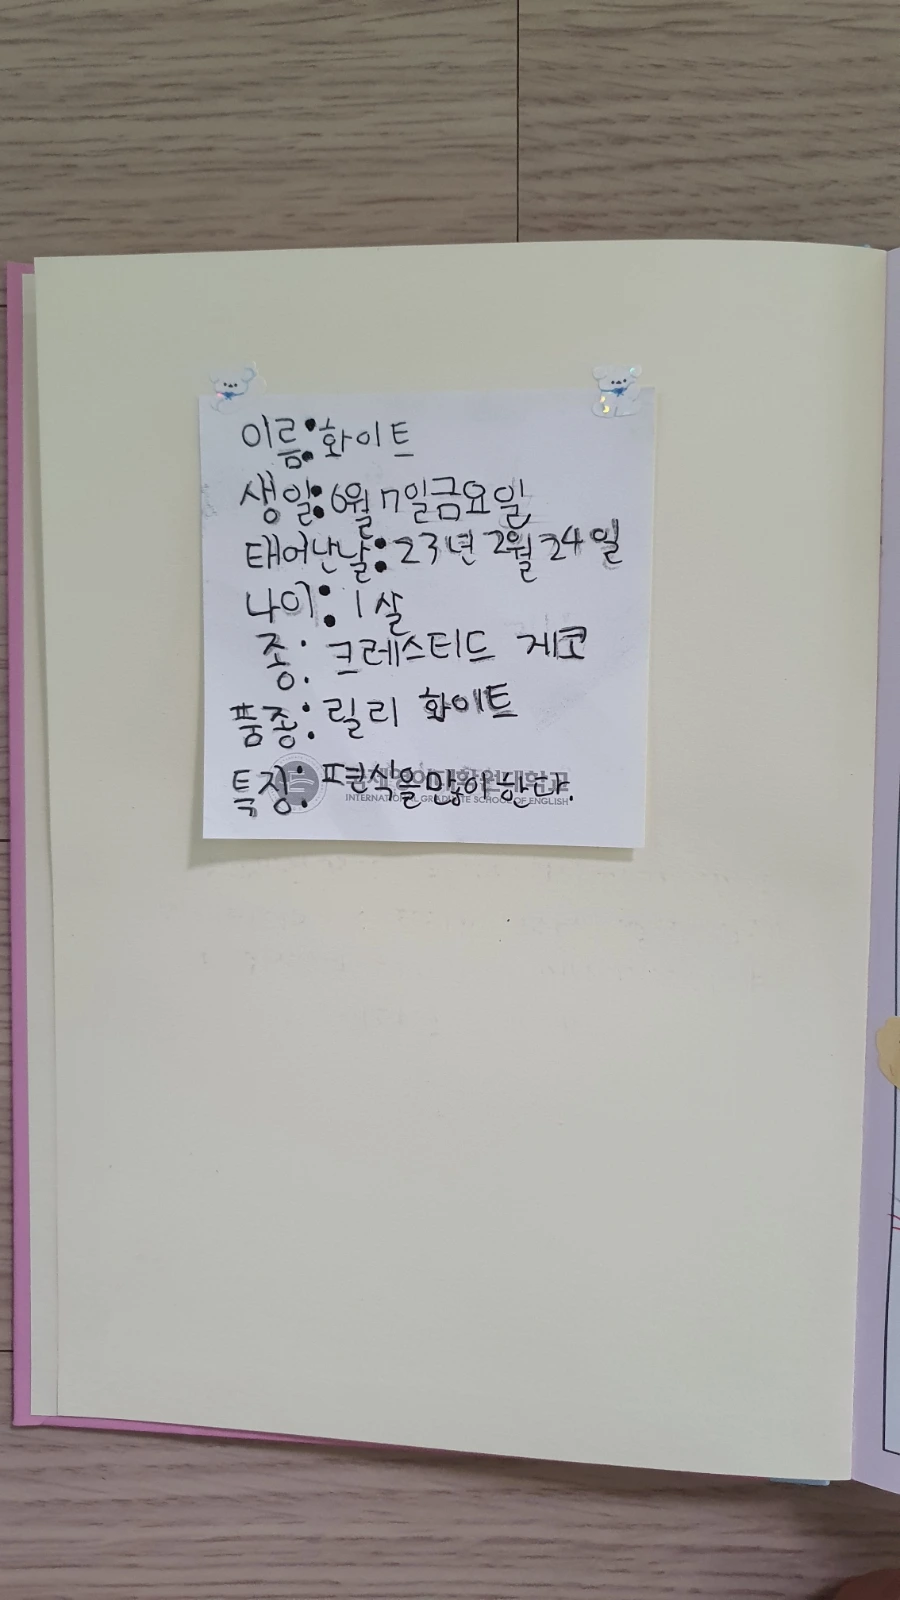 이름:화이트
생일:6월 7일금요일
태어난날:23년 2월 24일
나이:1살
종:크레스티드 게코
품종:릴리 화이트
특징:편식을많이한다.
국제영어대학원대학교
INTERNATIONAL GRADUATE SCHOOL OF ENGLISH